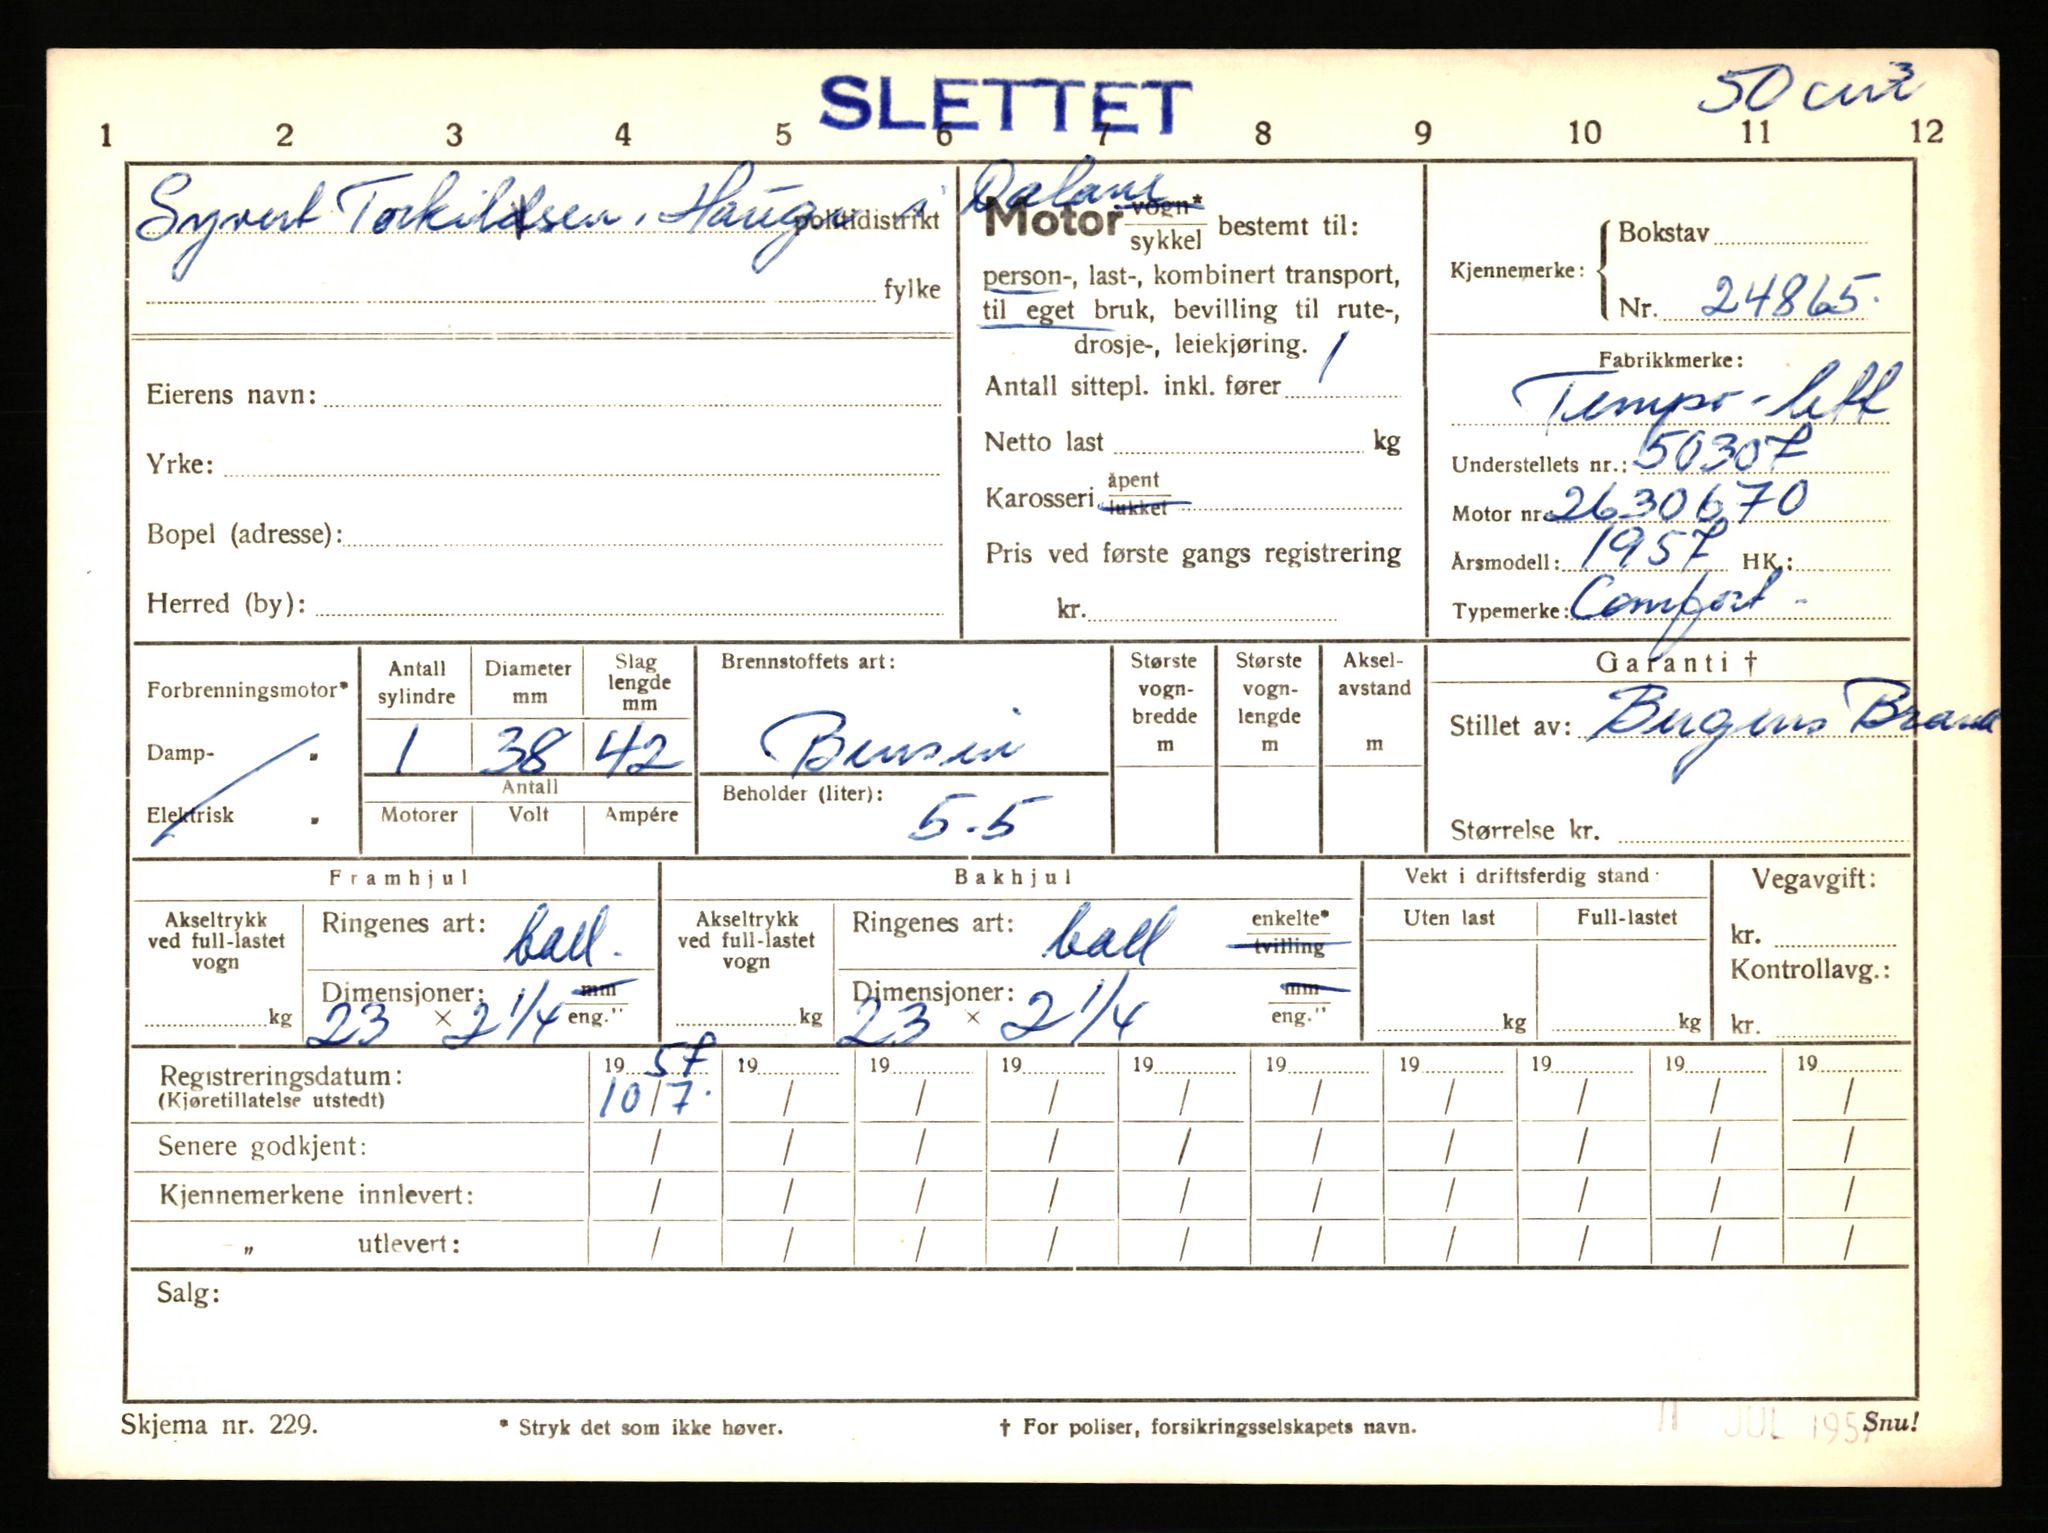 SLETTET
50 cm3
1 2 3 4 5 6 7 8 9 10 11 12
Syvert Torkildsen, Haugen i Dalane
politidistrikt
fylke
Eierens navn:
Yrke:
Bopel (adresse):
Herred (by):
Motor vogn* sykkel bestemt til:
person-, last-, kombinert transport,
til eget bruk, bevilling til rute-,
drosje-, leiekjøring.
Antall sittepl. inkl. fører 1
Netto last kg
Karosseri åpent lukket
Pris ved første gangs registrering
kr.
Kjennemerke: Bokstav
Nr. 24865.
Fabrikkmerke:
Tempo - lett
Understellets nr.: 50307
Motor nr: 2630670
Årsmodell: 1957 HK.:
Typemerke: Comfort -
Forbrenningsmotor*
Damp- „
Elektrisk „
Antall sylindre
Diameter mm
Slag lengde mm
1 38 42
Antall
Motorer Volt Ampére
Brennstoffets art:
Bensin
Beholder (liter):
5.5
Største vogn-bredde m
Største vogn-lengde m
Aksel-avstand m
Garanti †
Stillet av: Bergens Brand
Størrelse kr.
Framhjul
Akseltrykk ved full-lastet vogn
kg
Ringenes art: ball.
Dimensjoner: mm
23 × 2 1/4 eng."
Bakhjul
Akseltrykk ved full-lastet vogn
kg
Ringenes art: ball enkelte* tvilling
Dimensjoner: mm
23 × 2 1/4 eng."
Vekt i driftsferdig stand:
Uten last Full-lastet
kg kg
Vegavgift:
kr.
Kontrollavg.:
kr.
Registreringsdatum: 19 57 19 19 19 19 19 19 19 19 19
(Kjøretillatelse utstedt) 10/7. / / / / / / / / /
Senere godkjent: / / / / / / / / / /
Kjennemerkene innlevert: / / / / / / / / / /
„ utlevert: / / / / / / / / / /
Salg:
Skjema nr. 229.
* Stryk det som ikke høver.
† For poliser, forsikringsselskapets navn.
JUL 1957
Snu!